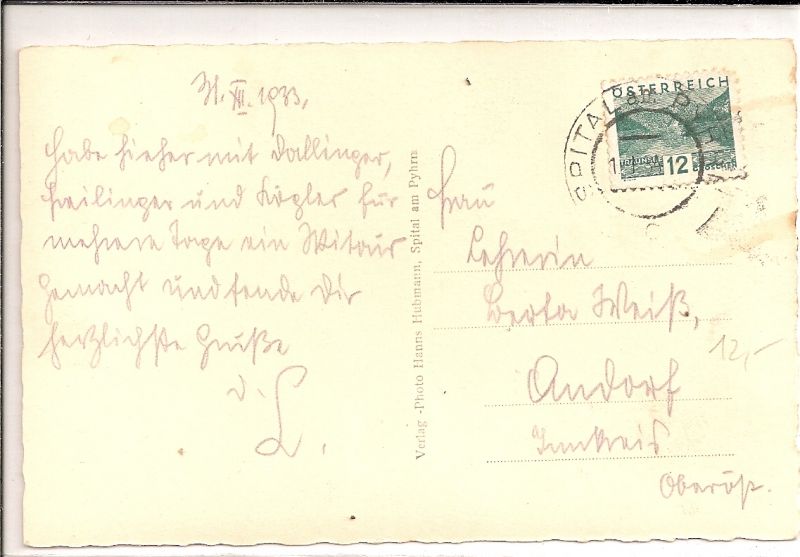 31. XII. 1933.
Habe hieher mit Dallinger,
Heilinger und Kogler für
mehrere Tage ein
gemacht und sende Dir
herzlichste Grüße
D. L.
Verlag -Photo Hanns Hubmann, Spital am Pyhrn
ÖSTERREICH
12
GROSCHEN
SPITAL am PYHRN
Frau
Lehrerin
Berta Weiß,
Andorf
Innkreis
Oberöst.
12,-